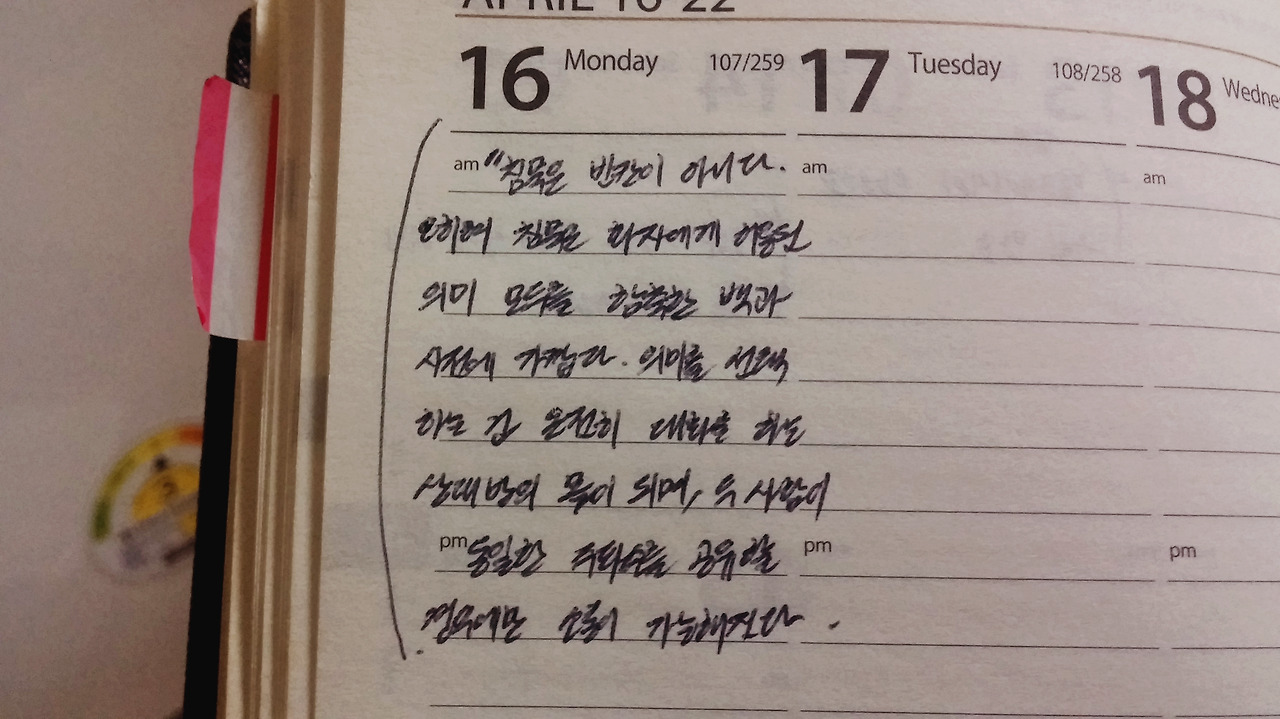 APRIL 16-22
16 Monday 107/259
17 Tuesday 108/258
18 Wedne
am "침묵은 빈칸이 아니다.
오히려 침묵은 화자에게 허용된
의미 모두를 함축한 백과
사전에 가깝다. 의미를 선택
하는 건 온전히 대화를 하는
상대방의 몫이 되며, 두 사람이
pm 동일한 주파수를 공유할
경우에만 소통이 가능해진다.
am
am
pm
pm